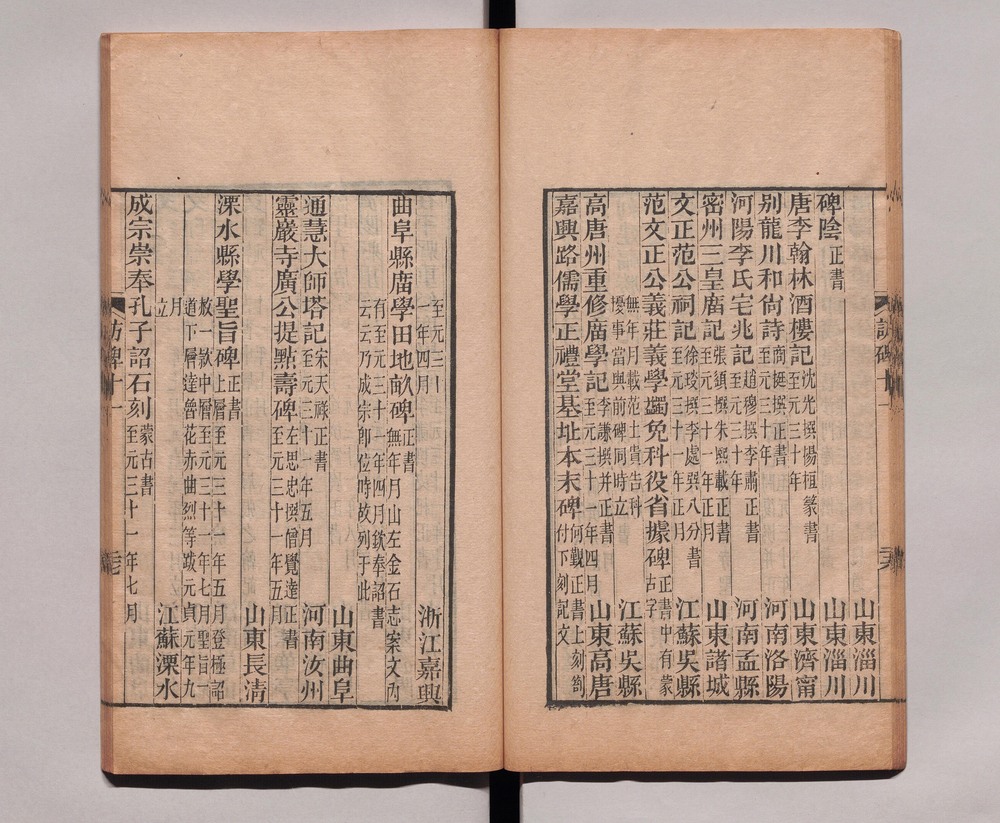 山東淄川
碑陰正書 山東淄川
唐李翰林酒樓記沈光撰楊桓篆書至元三十年 山東濟甯
别龍川和尙詩商挺撰正書至元三十年 河南洛陽
河陽李氏宅兆記趙穆撰李肅正書至元三十年 河南孟縣
密州三皇廟記張鎮撰朱熙載正書至元三十一年正月 山東諸城
文正范公祠記徐琰撰李處巽八分書至元三十一年正月 江蘇吳縣
范文正公義莊義學蠲免科役省據碑正書中有蒙古字
無年月載范士貴告科擾事當與前碑同時立 江蘇吳縣
高唐州重修廟學記李謙撰并正書至元三十一年四月 山東高唐
嘉興路儒學正禮堂基址本末碑何觀正書上刻劄付下刻記文
至元三十一年四月 浙江嘉興
曲阜縣廟學田地畝碑正書無年月山左金石志案文內
有至元三十一年四月欽奉詔書云云乃成宗卽位時故列于此 山東曲阜
通慧大師塔記宋天祿正書至元三十一年五月 河南汝州
靈巖寺廣公提點壽碑左思忠撰僧覺達正書至元三十一年五月
山東長清
溧水縣學聖旨碑正書上層至元三十一年五月登極詔
赦一款中層至元三十一年七月聖旨一道下層達魯花赤曲烈等跋元貞元年九
月立 江蘇溧水
成宗崇奉孔子詔石刻蒙古書至元三十一年七月
訪碑十一